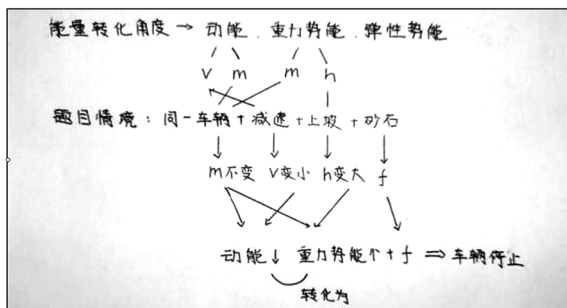 能量转化角度 → 动能、重力势能、弹性势能
v m m h
题目情境：同一车辆+减速+上坡+砂石
m不变 v变小 h变大 f
动能↓ 重力势能个+f ⇒车辆停止
转化为